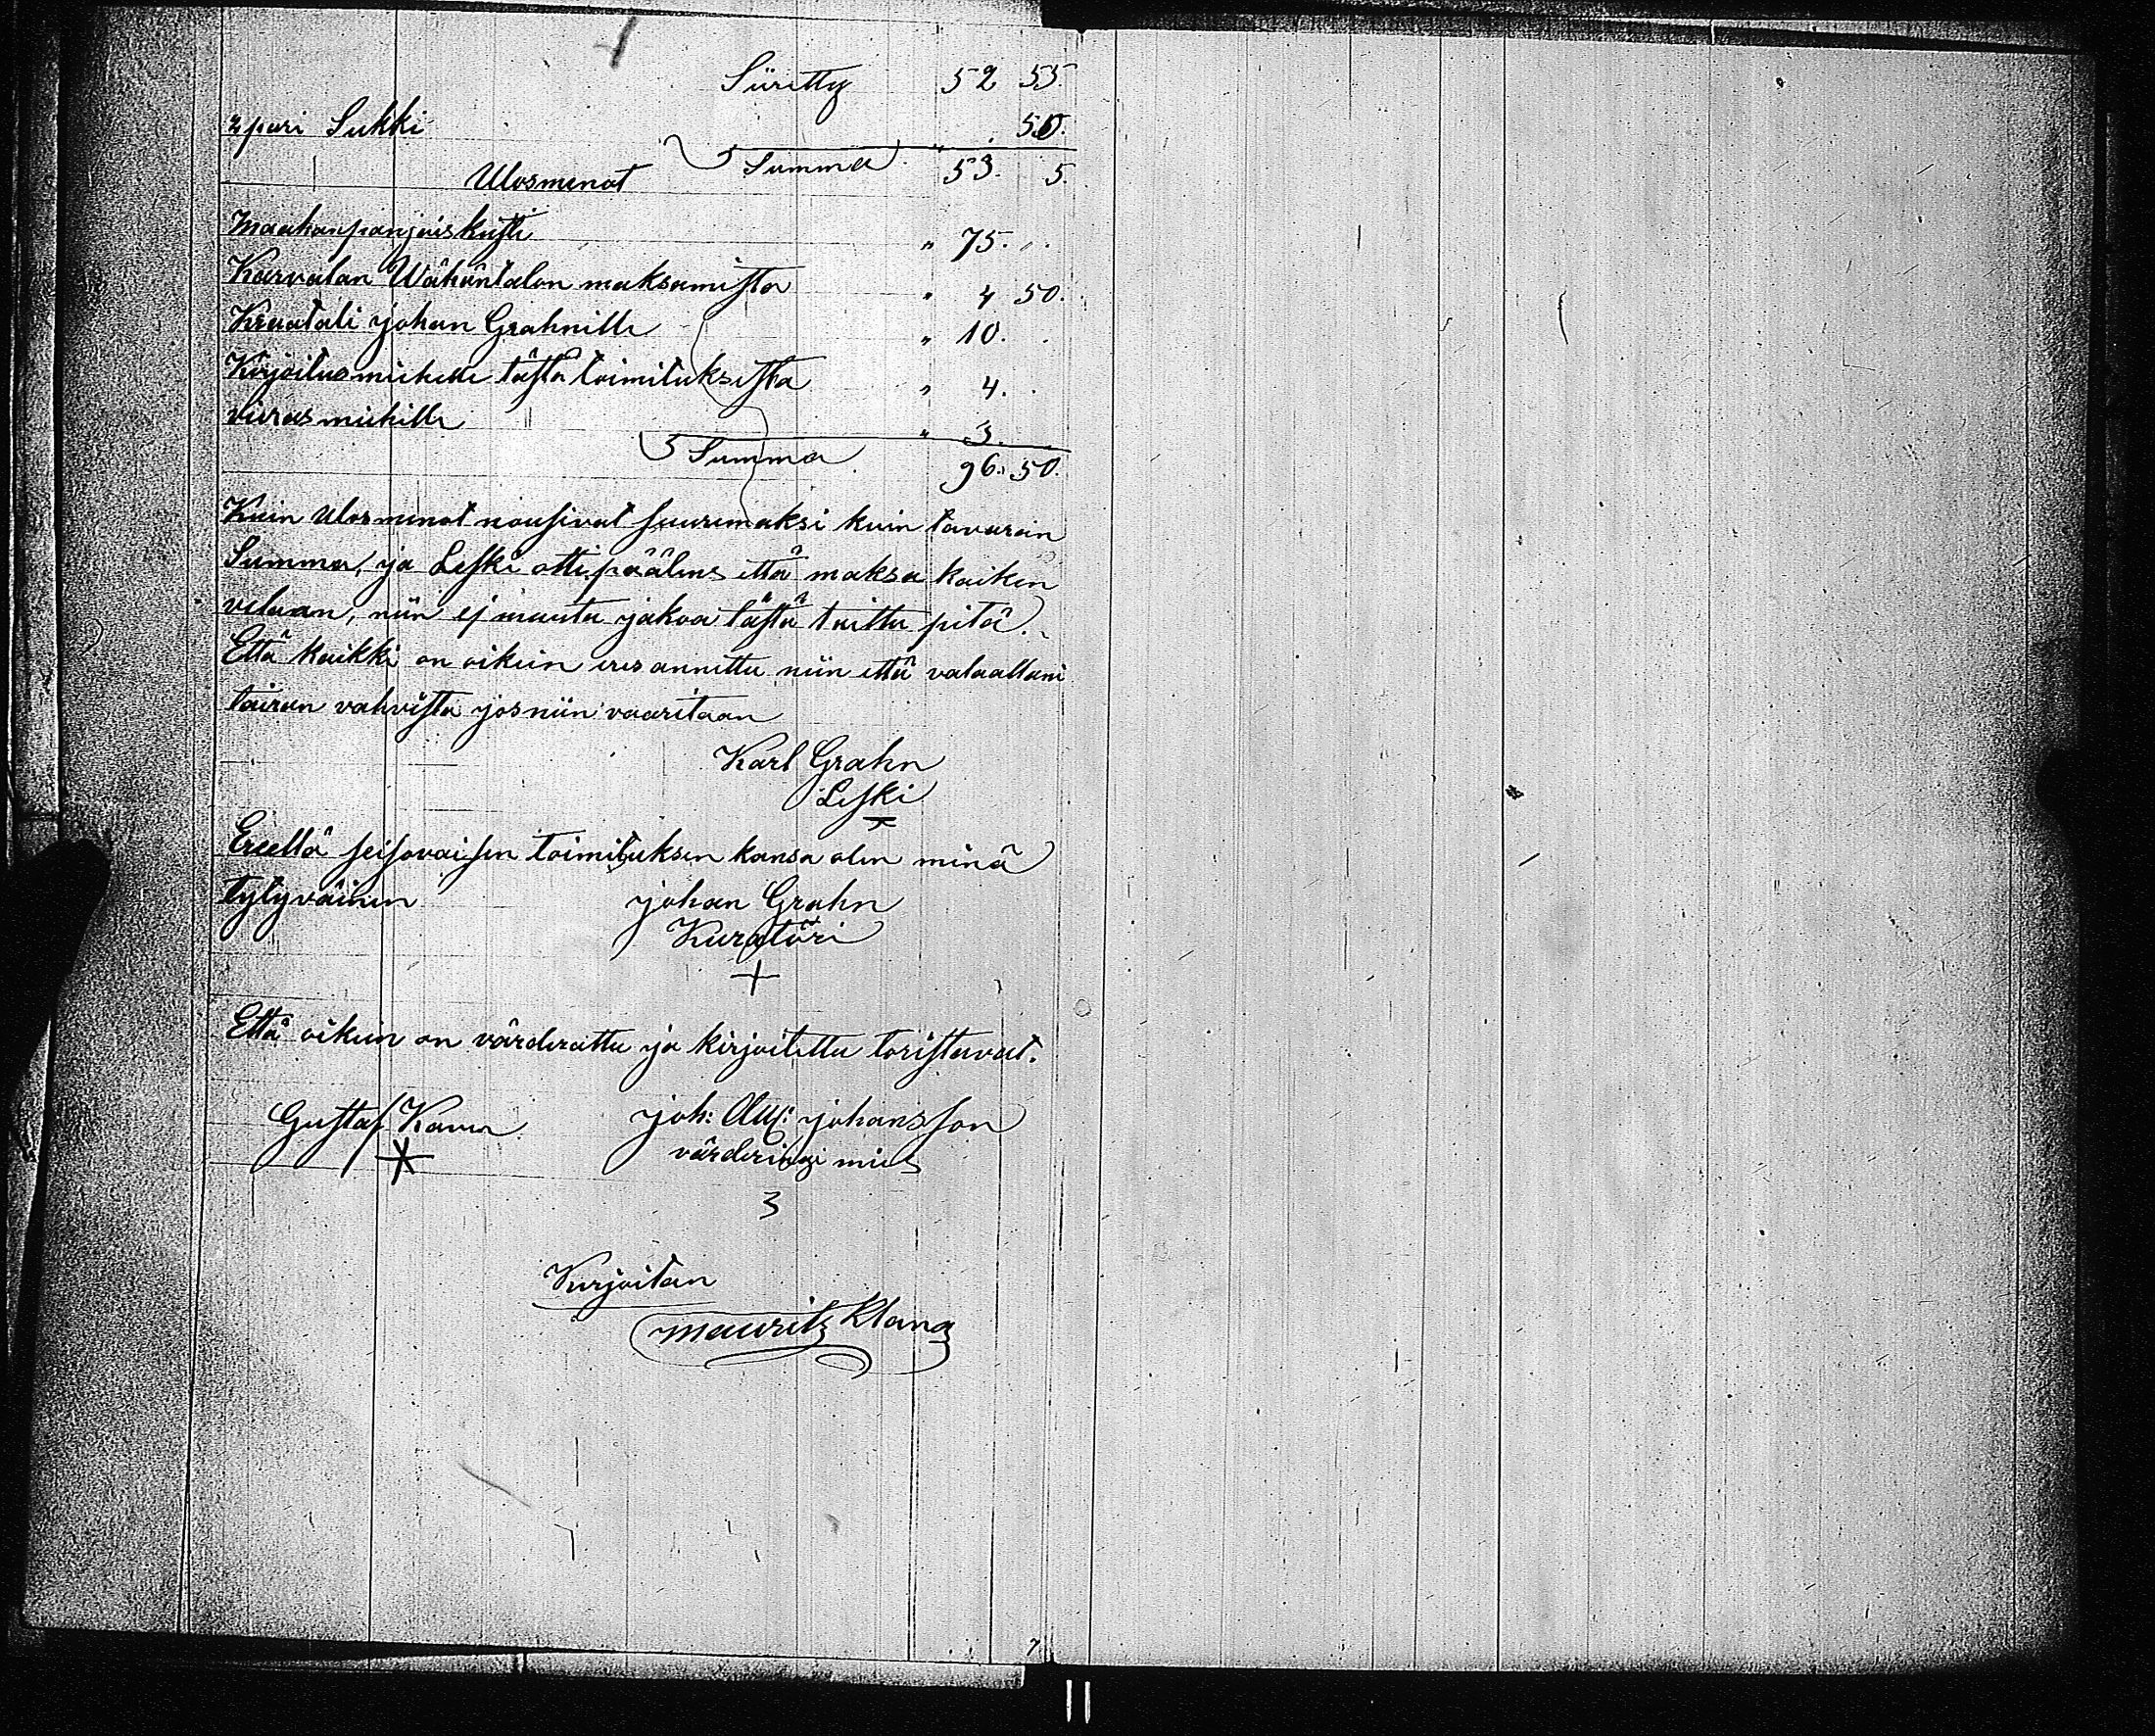 Siiretty 52 55.
2 pari Sukki " . 50.
Summa 53. 5.
Ulosmenot
Maahanpanjaiskusti " 75. . .
Karvalan Wähäntalon maksamista " 4 50.
Kraatali johan Grahnille " 10. .
Kirjoitusmiehelle tästä toimituksesta " 4. .
vierasmiehille " 3. .
Summa 96. 50.
Kuin Ulosmenot nousivat suuremaksi kuin tavaran
Summa, ja Leski otti päälens että maksa kaiken
velaan, niin ej muuta jakoa tästä taittu pitä.
Että kaikki on oikein eres annettu niin että valaallani
tairan vahvista jos niin vaaritaan
Karl Grahn
Leski
Ereellä seisovaisen toimituksen kansa olen minä
tytyväinen johan Grahn
Kuratöri
+
Että oikein on värderattu ja kirjoitettu toristavat.
Gustaf Kava joh: Alex: johansson
värderingi mies
3
Kirjoitan
Mauritz Klang